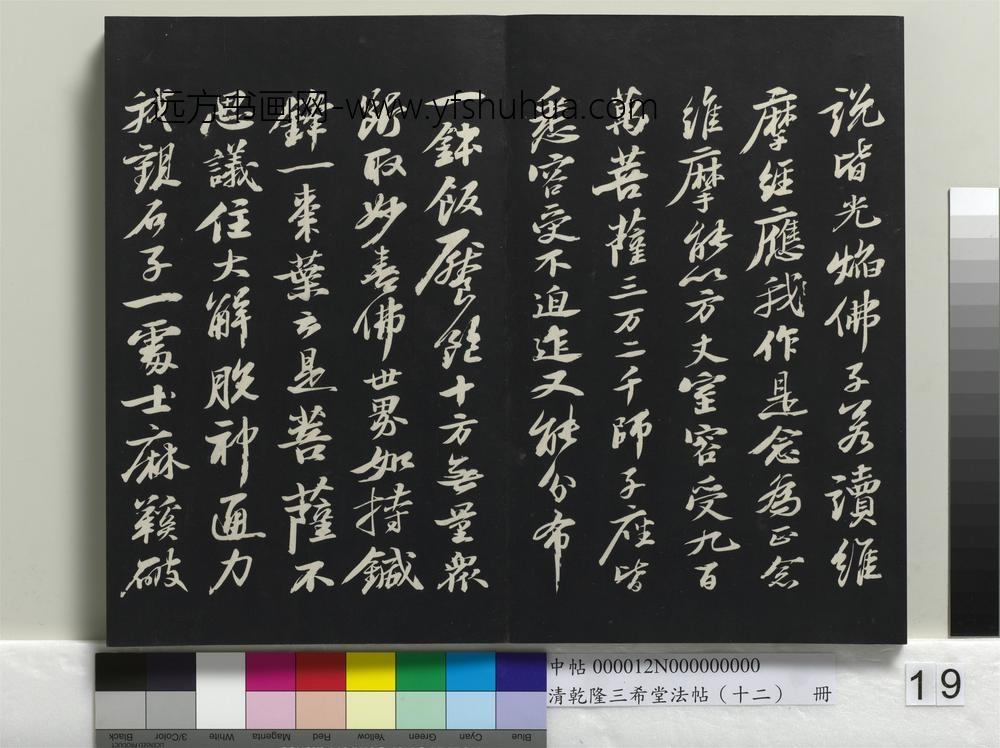 说皆光焰佛子若讀維
摩经應我作是念為正念
维摩能以方丈室容受九百
萬菩薩三万二千師子座皆
悉容受不迫迮又能分布
一鉢飯饜飽十方無量衆
断取妙喜佛世界如持鍼
鋒一棗葉云是菩薩不
思議住大解脱神通力
我觀石子一處士麻鞵破
远方书画网-www.yfshuhua.com
中帖 000012N000000000
清乾隆三希堂法帖（十二） 冊
19
Black
3/Color
White
Magenta
Red
Yellow
Green
Cyan
Blue